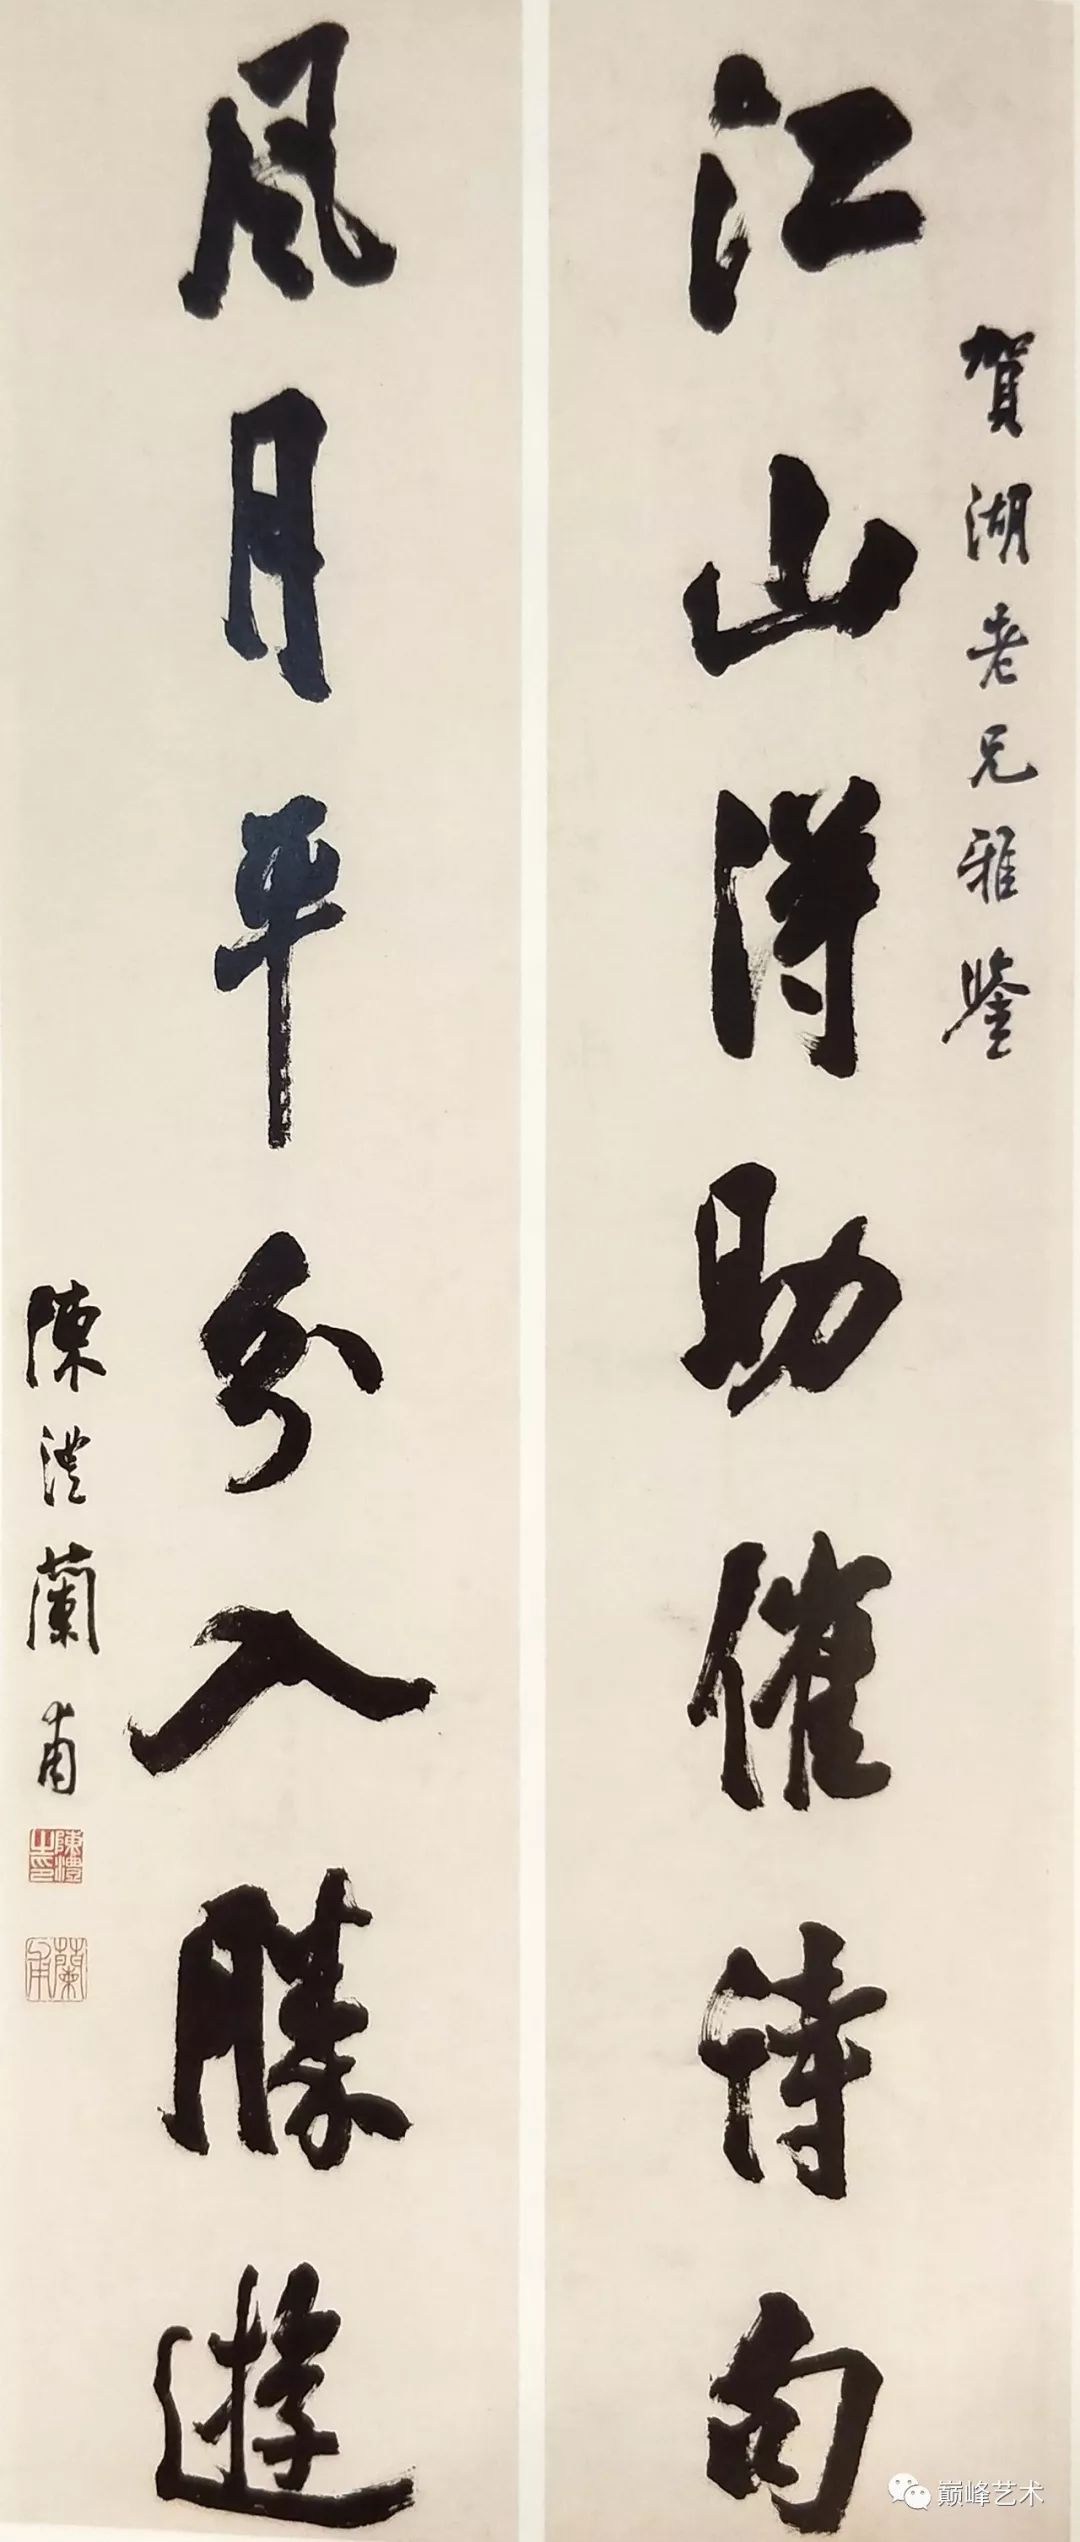 賀湖老兄雅鑒
江山得助催詩句
風月平分入勝遊
陳澧蘭甫
陳澧之印
蘭甫
巅峰艺术